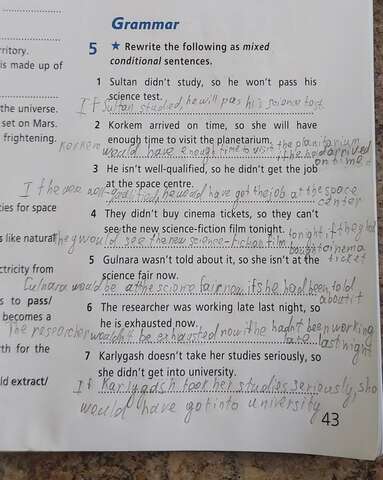 Grammar
5 ★ Rewrite the following as mixed
conditional sentences.
1 Sultan didn't study, so he won't pass his
science test.
If Sultan studied, he will pass his science test.
2 Korkem arrived on time, so she will have
enough time to visit the planetarium.
Korkem would have enough time to visit the planitarium
if she had arrived
on time
3 He isn't well-qualified, so he didn't get the job
at the space centre.
If he was well-qualified he would have got the job at the space
center
4 They didn't buy cinema tickets, so they can't
see the new science-fiction film tonight.
They would see the new science-fiction film tonight, if they had
bought cinema
ticket
5 Gulnara wasn't told about it, so she isn't at the
science fair now.
Gulnara would be at the science fair now if she had been told
about it
6 The researcher was working late last night, so
he is exhausted now.
The researcher wouldn't be exhausted now if he hadn't been working
late last night
7 Karlygash doesn't take her studies seriously, so
she didn't get into university.
If Karlygash took her studies seriously, she
would have got into university
43
rritory.
is made up of
the universe.
set on Mars.
frightening.
ties for space
s like natural
ctricity from
s to pass/
becomes a
rth for the
ld extract/